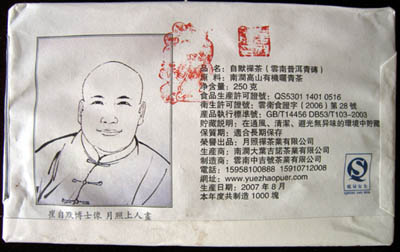 品名：自默禪茶（雲南普洱青磚）
原料：南澗高山有機曬青茶
净含量：250克
食品生産許可證號：QS5301 1401 0516
衛生許可證號：雲南食證字（2006）第28號
産品執行標凖號：GB/T14456 DB53/T103-2003
貯藏説明：在通風、清潔、避光無异味的環境中貯藏
保質期：適合長期保存
榮譽出品：月照禪茶業有限公司
原料産地：南澗大葉古諾茶業有限公司
制造商：雲南中吉號茶業有限公司
電話：15958100888 15910712008
網址：www.yuezhaopuer.com
生産日期：2007年8月
本年度共制造1000塊
崔自默博士像 月照上人畫
質量安全